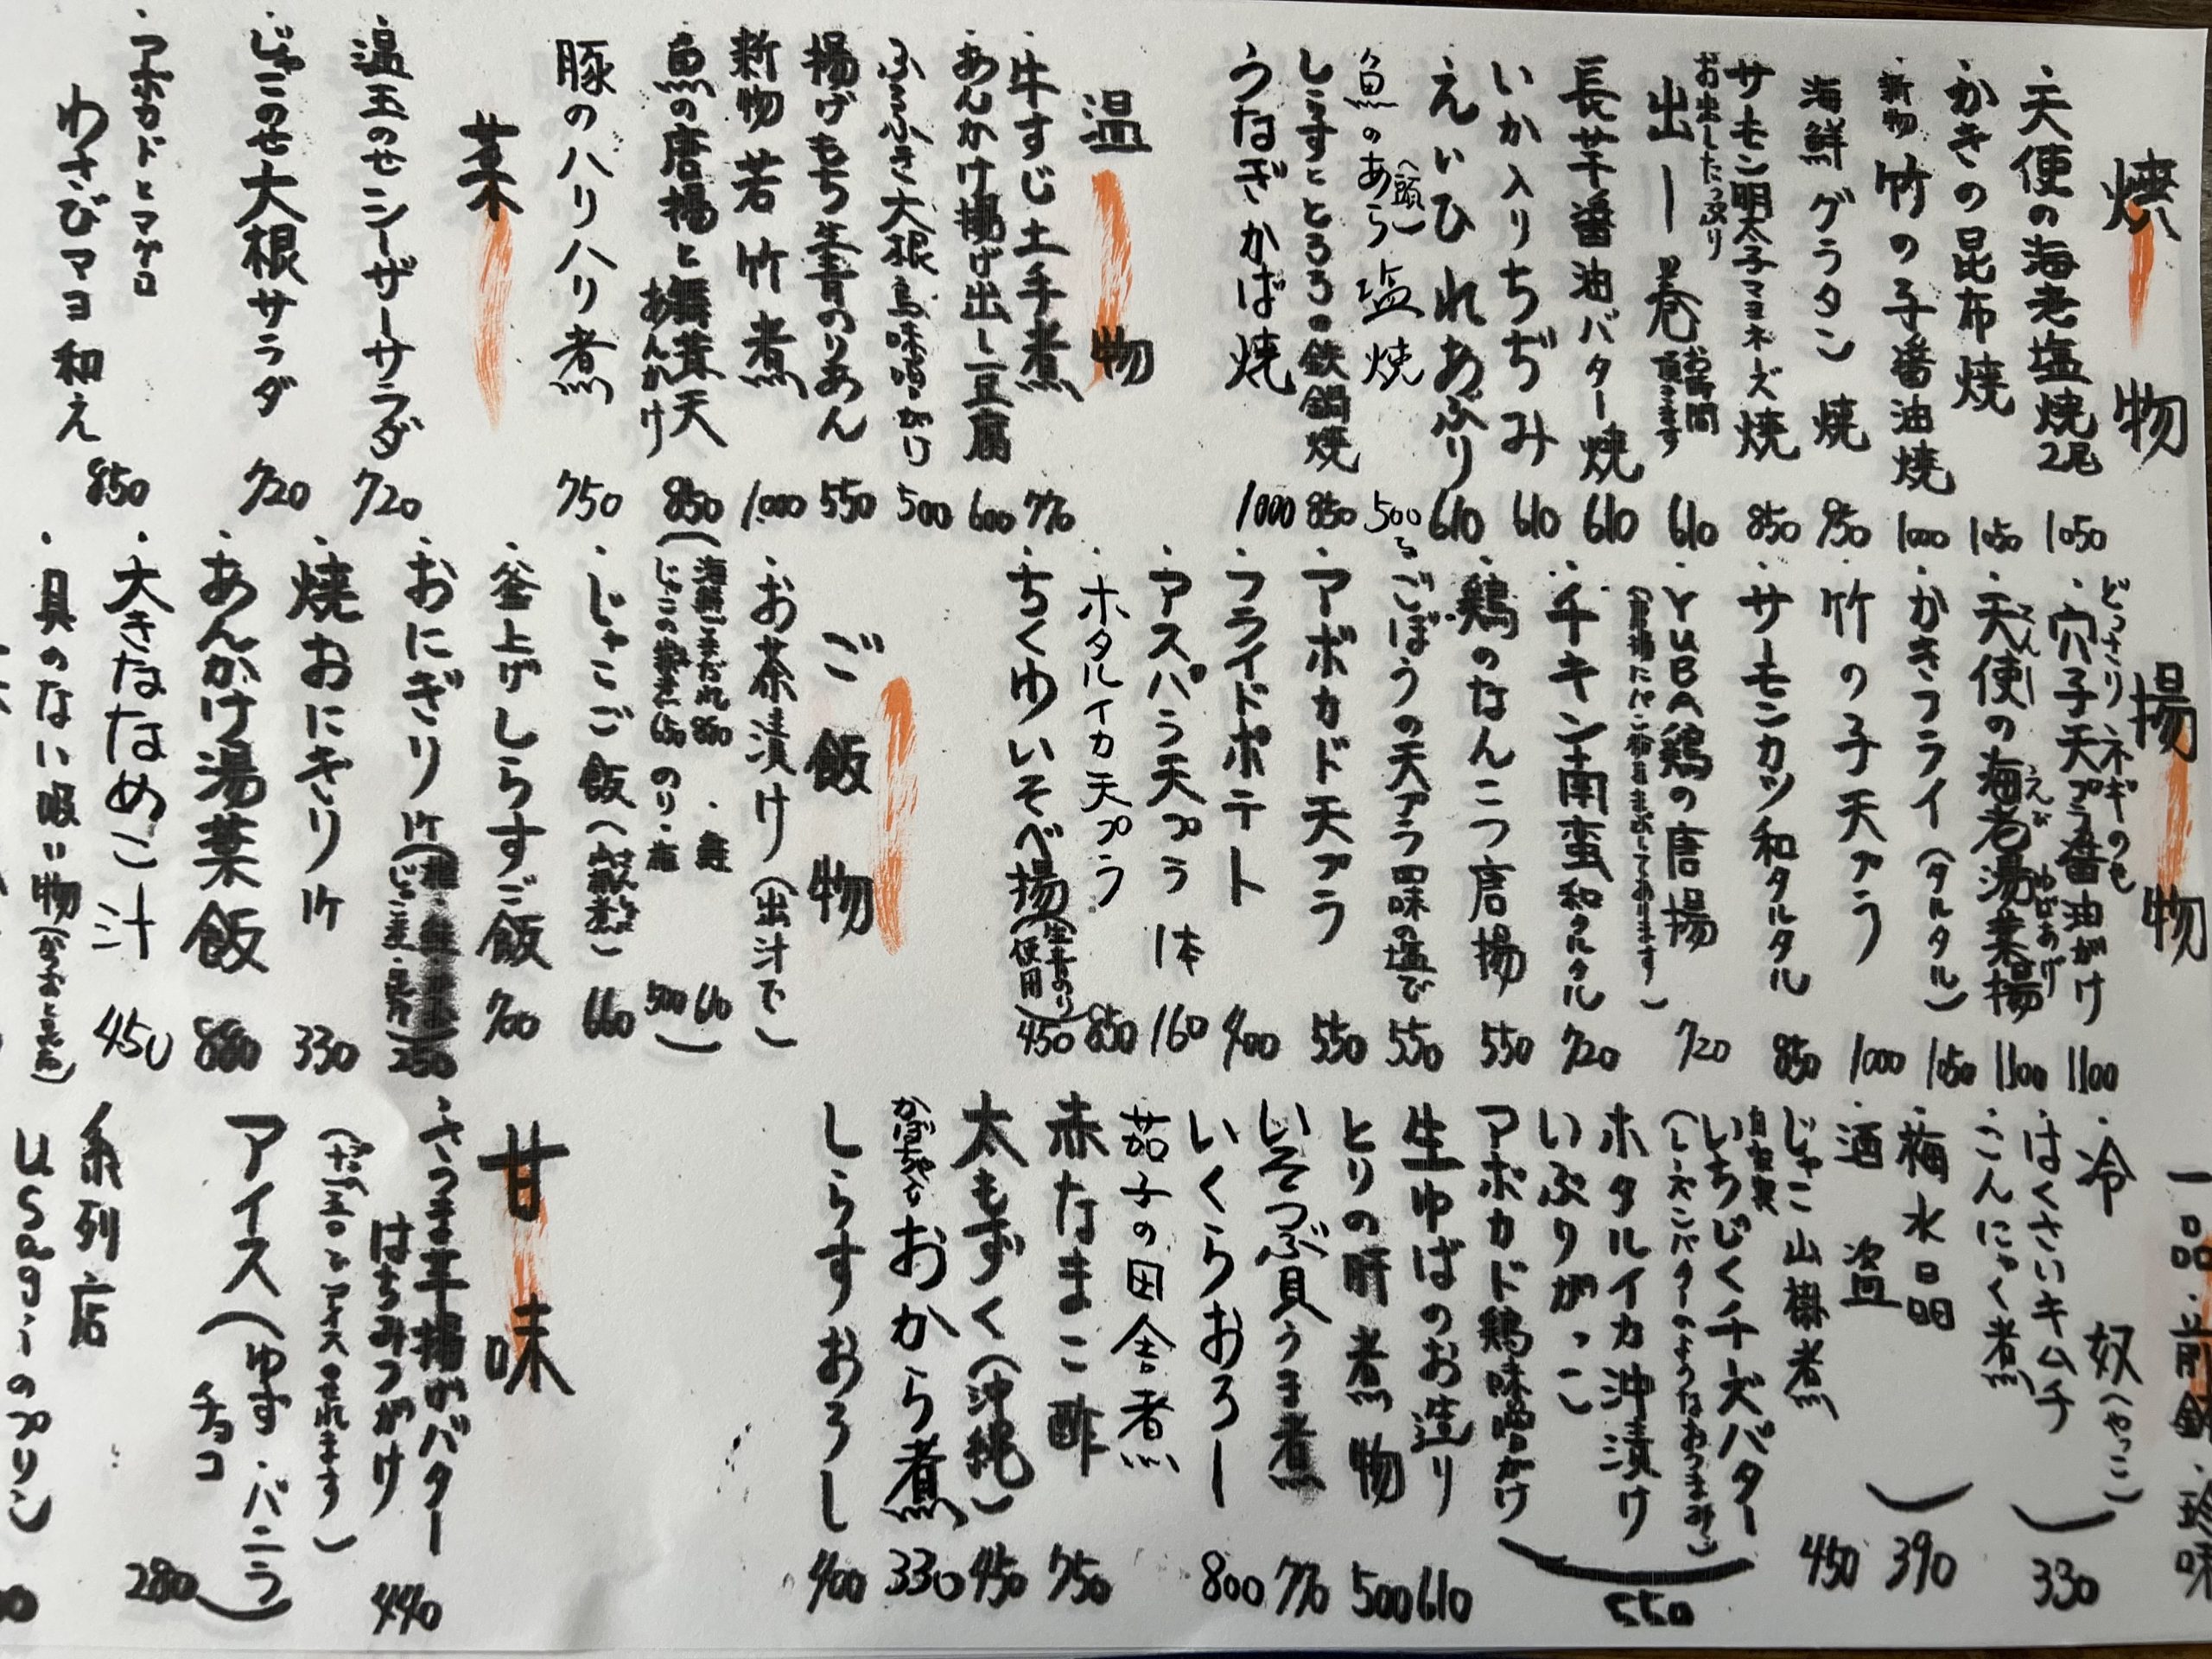 焼物
・天使の海老塩焼2尾 1050
・かきの昆布焼 1050
・新物竹の子醤油焼 1000
・海鮮グラタン焼 950
・サーモン明太子マヨネーズ焼 850
お出したっぷり
出し巻 お時間頂きます 610
長芋醤油バター焼 610
いか入りちぢみ 610
えいひれあぶり 610
魚のあら(頭)塩焼 500
しらすととろろの鉄鍋焼 850
うなぎかば焼 1000
温物
・牛すじ土手煮 770
・あんかけ揚げ出し豆腐 600
・ふろふき大根鳥味噌がけ 500
・揚げもち生青のりあん 550
・新物若竹煮 1000
・魚の唐揚と舞茸天
あんかけ 850
・豚のハリハリ煮 750
菜
・温玉のせシーザーサラダ 720
・じゃこのせ大根サラダ 720
・アボカドとマグロ
わさびマヨ和え 850
揚物
どっさりネギのせ
・穴子天プラ醤油がけ 1100
・天使の海老湯葉揚 1100
てんし
えび
ゆばあげ
・かきフライ(タルタル) 1050
・竹の子天プラ 1000
・サーモンカツ和タルタル 850
・YUBA鶏の唐揚 720
・チキン南蛮和タルタル 720
・鶏のなんこつ唐揚 550
・ごぼうの天プラ四味の塩で 550
・アボカド天プラ 550
・フライドポテト 400
・アスパラ天プラ1本 160
・ホタルイカ天プラ 850
・ちくわいそべ揚(生青のり使用) 450
ご飯物
・お茶漬け(出汁で)
・じゃこご飯 660
・釜上げしらすご飯 700
・おにぎり1ケ 250
・焼おにぎり1ケ 330
・あんかけ湯葉飯 880
・大きななめこ汁 450
・具のない吸い物
一品・前菜・珍味
・冷奴(やっこ)
・はくさいキムチ
・こんにゃく煮
330
・梅水晶
・酒盗
390
じゃこ山椒煮 450
自家製
いちじくチーズバター
ホタルイカ沖漬け
いぶりがっこ
アボカド鶏味噌がけ
550
生ゆばのお造り 610
とりの肝煮物 500
いそつぶ貝うま煮 770
いくらおろし 800
茄子の田舎煮
赤なまこ酢 750
太もずく(沖縄) 450
かぼちゃおから煮 330
しらすおろし 400
甘味
・さつま芋揚げバター
はちみつがけ 440
アイス(ゆず・バニラ
チョコ) 280
系列店
usagiーのプリン